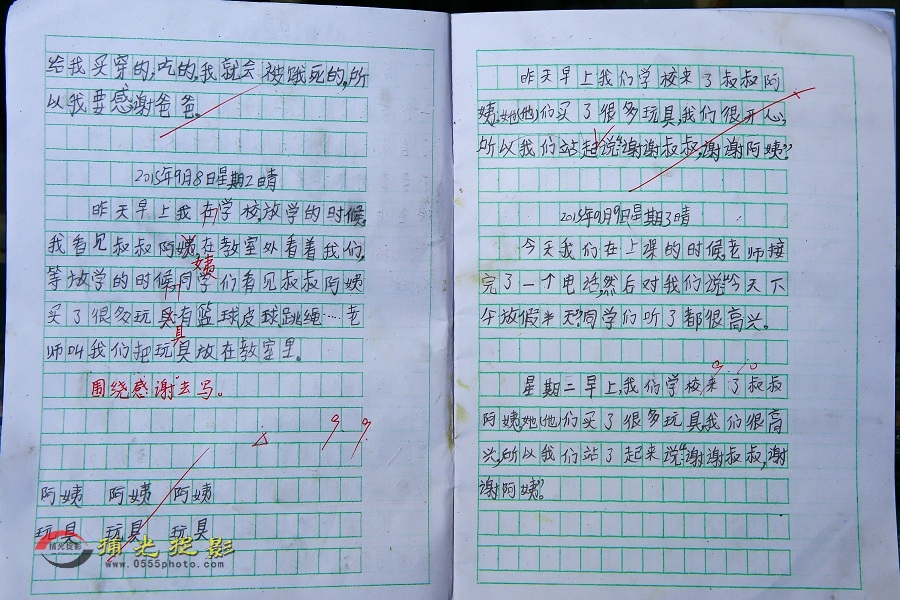 给我买穿的,吃的,我就会被饿死的,所
以我要感谢爸爸。
2015年9月8日星期2晴
昨天早上我在学校,放学的时候,
我看见叔叔阿姨,在教室外看着我们,
姨
等放学的时候,同学们看见叔叔阿姨
买了很多玩具,有篮球,皮球,跳绳……老
具
师叫我们把玩具放在教室里。
围绕感谢去写。
9.9.
阿姨 阿姨 阿姨
玩具 玩具 玩具
捕光捉影
捕光捉影
www.0555photo.com
昨天早上我们学校来了叔叔阿
姨,她(他)们买了很多玩具,我们很开心,
所以我们站起说“谢谢叔叔,谢谢阿姨”
2015年9月9日星期3晴
今天我们在上课的时候,老师接
完了一个电话,然后对我们说“今天下
午放假半天”同学们听了都很高兴。
9.10
星期二早上,我们学校,来了叔叔
阿姨,她(他)们买了很多玩具,我们很高
兴,所以我们站了起来说“谢谢叔叔,谢
谢阿姨”。